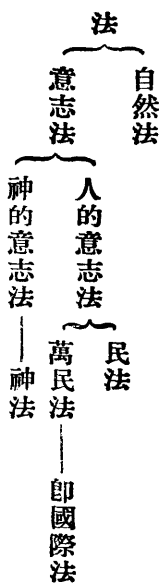 法
自然法
意志法
人的意志法
神的意志法——神法
民法
萬民法——卽國際法